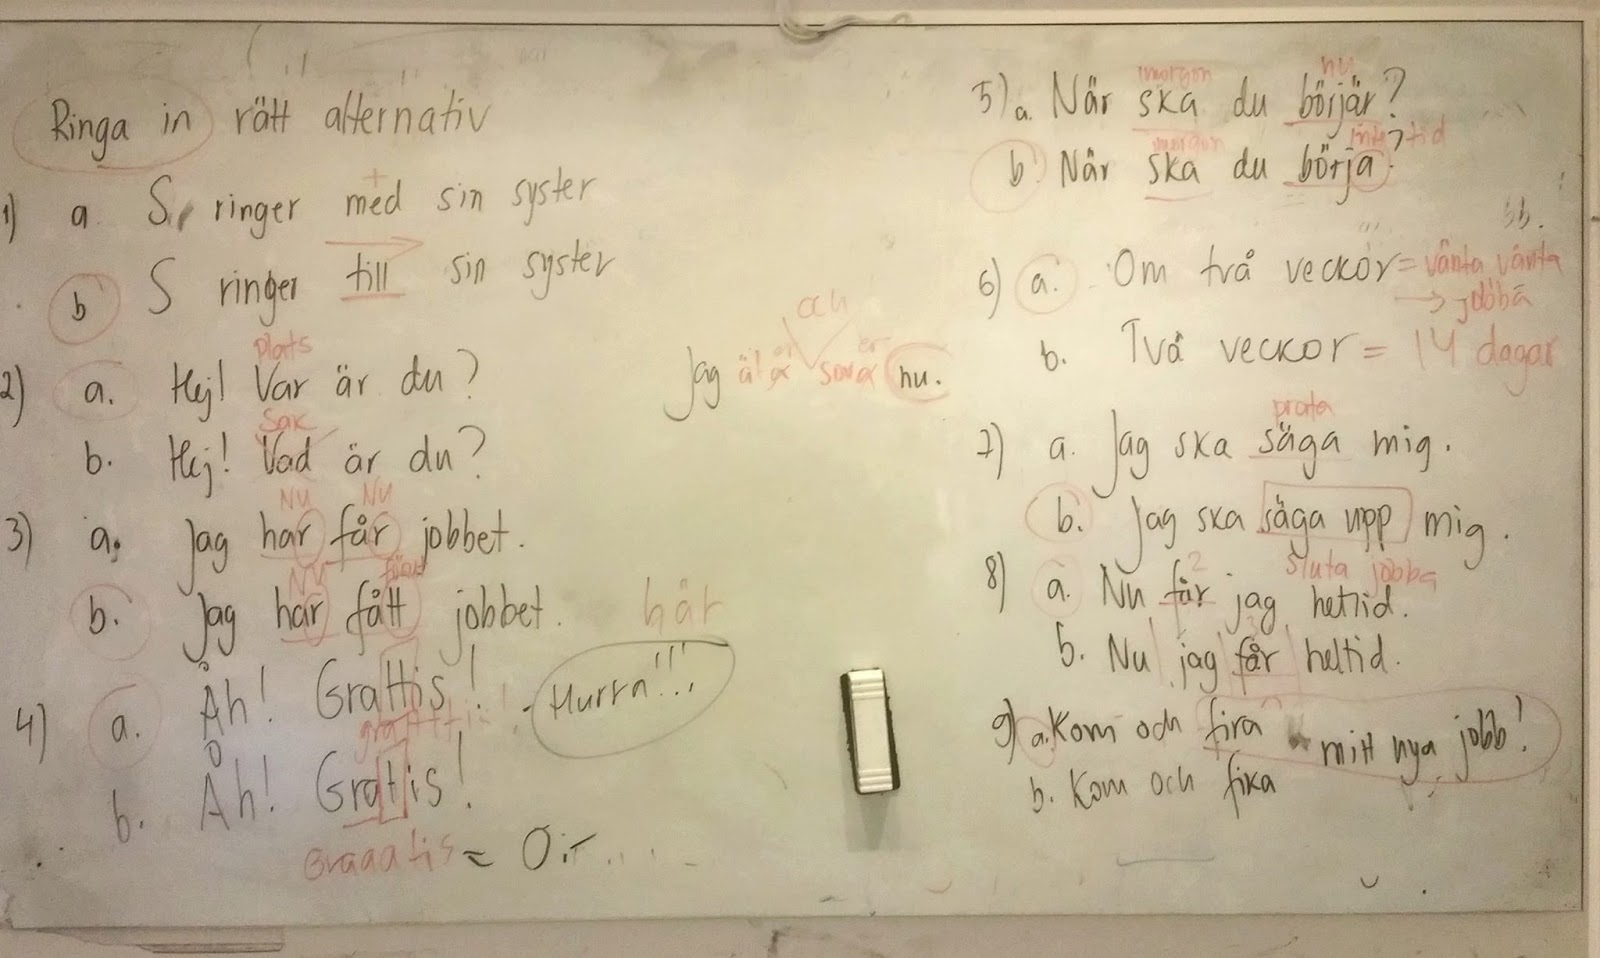 Ringa in rätt alternativ
1) a S ringer med sin syster
b S ringer till sin syster
plats
2) a. Hej! Var är du?
Sak
b. Hej! Vad är du?
Nu Nu
3) a. Jag har får jobbet.
Nu
b. Jag har fått jobbet.
här
4) a. Åh! Grattis! - Hurra!!!
b. Åh! Gratis!
Graaatis = 0:-
och
Jag nu.
morgon nu
5) a. När ska du börjar?
morgon tid
b När ska du börja?
6) a. Om två veckor = vänta vänta
→ jobba
b. Två veckor = 14 dagar
prata
7) a. Jag ska säga mig.
b. Jag ska säga upp mig.
sluta jobba
2
8) a. Nu får jag heltid.
b. Nu jag får heltid.
9) a. Kom och fira mitt nya jobb!
b. Kom och fika